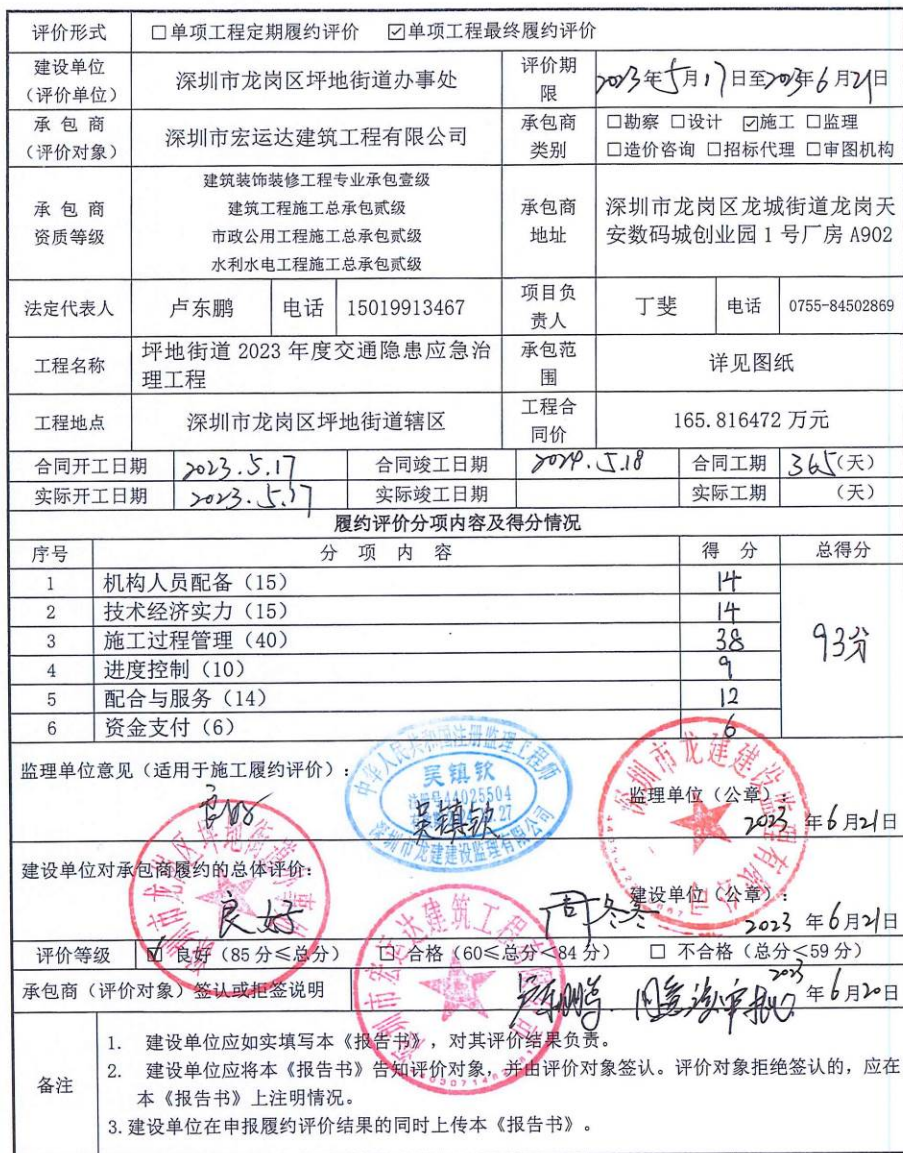 评价形式 □单项工程定期履约评价 ☑单项工程最终履约评价
建设单位（评价单位） 深圳市龙岗区坪地街道办事处 评价期限 2023年5月17日至2023年6月21日
承包商（评价对象） 深圳市宏运达建筑工程有限公司 承包商类别 □勘察 □设计 ☑施工 □监理
□造价咨询 □招标代理 □审图机构
承包商资质等级 建筑装饰装修工程专业承包壹级
建筑工程施工总承包贰级
市政公用工程施工总承包贰级
水利水电工程施工总承包贰级
承包商地址 深圳市龙岗区龙城街道龙岗天
安数码城创业园1号厂房A902
法定代表人 卢东鹏 电话 15019913467 项目负责人 丁斐 电话 0755-84502869
工程名称 坪地街道2023年度交通隐患应急治
理工程 承包范围 详见图纸
工程地点 深圳市龙岗区坪地街道辖区 工程合同价 165.816472万元
合同开工日期 2023.5.17 合同竣工日期 2024.5.18 合同工期 365(天)
实际开工日期 2023.5.17 实际竣工日期 实际工期 (天)
履约评价分项内容及得分情况
序号 分项内容 得分 总得分
1 机构人员配备（15） 14
2 技术经济实力（15） 14
3 施工过程管理（40） 38 93分
4 进度控制（10） 9
5 配合与服务（14） 12
6 资金支付（6） 6
监理单位意见（适用于施工履约评价）：
良好
中华人民共和国注册监理工程师
吴镇钦
注册号44025504
深圳市龙建建设监理有限公司
吴镇钦
深圳市龙建建设监理有限公司
监理单位（公章）：
2023年6月21日
建设单位对承包商履约的总体评价：
良好
建设单位（公章）：
2023年6月21日
深圳市龙岗区坪地街道办事处
深圳市宏运达建筑工程有限公司
评价等级 ☑ 良好（85分≤总分） □ 合格（60≤总分<84分） □ 不合格（总分<59分）
承包商（评价对象）签认或拒签说明 卢东鹏. 同意 2023年6月20日
备注 1. 建设单位应如实填写本《报告书》，对其评价结果负责。
2. 建设单位应将本《报告书》告知评价对象，并由评价对象签认。评价对象拒绝签认的，应在
本《报告书》上注明情况。
3.建设单位在申报履约评价结果的同时上传本《报告书》。